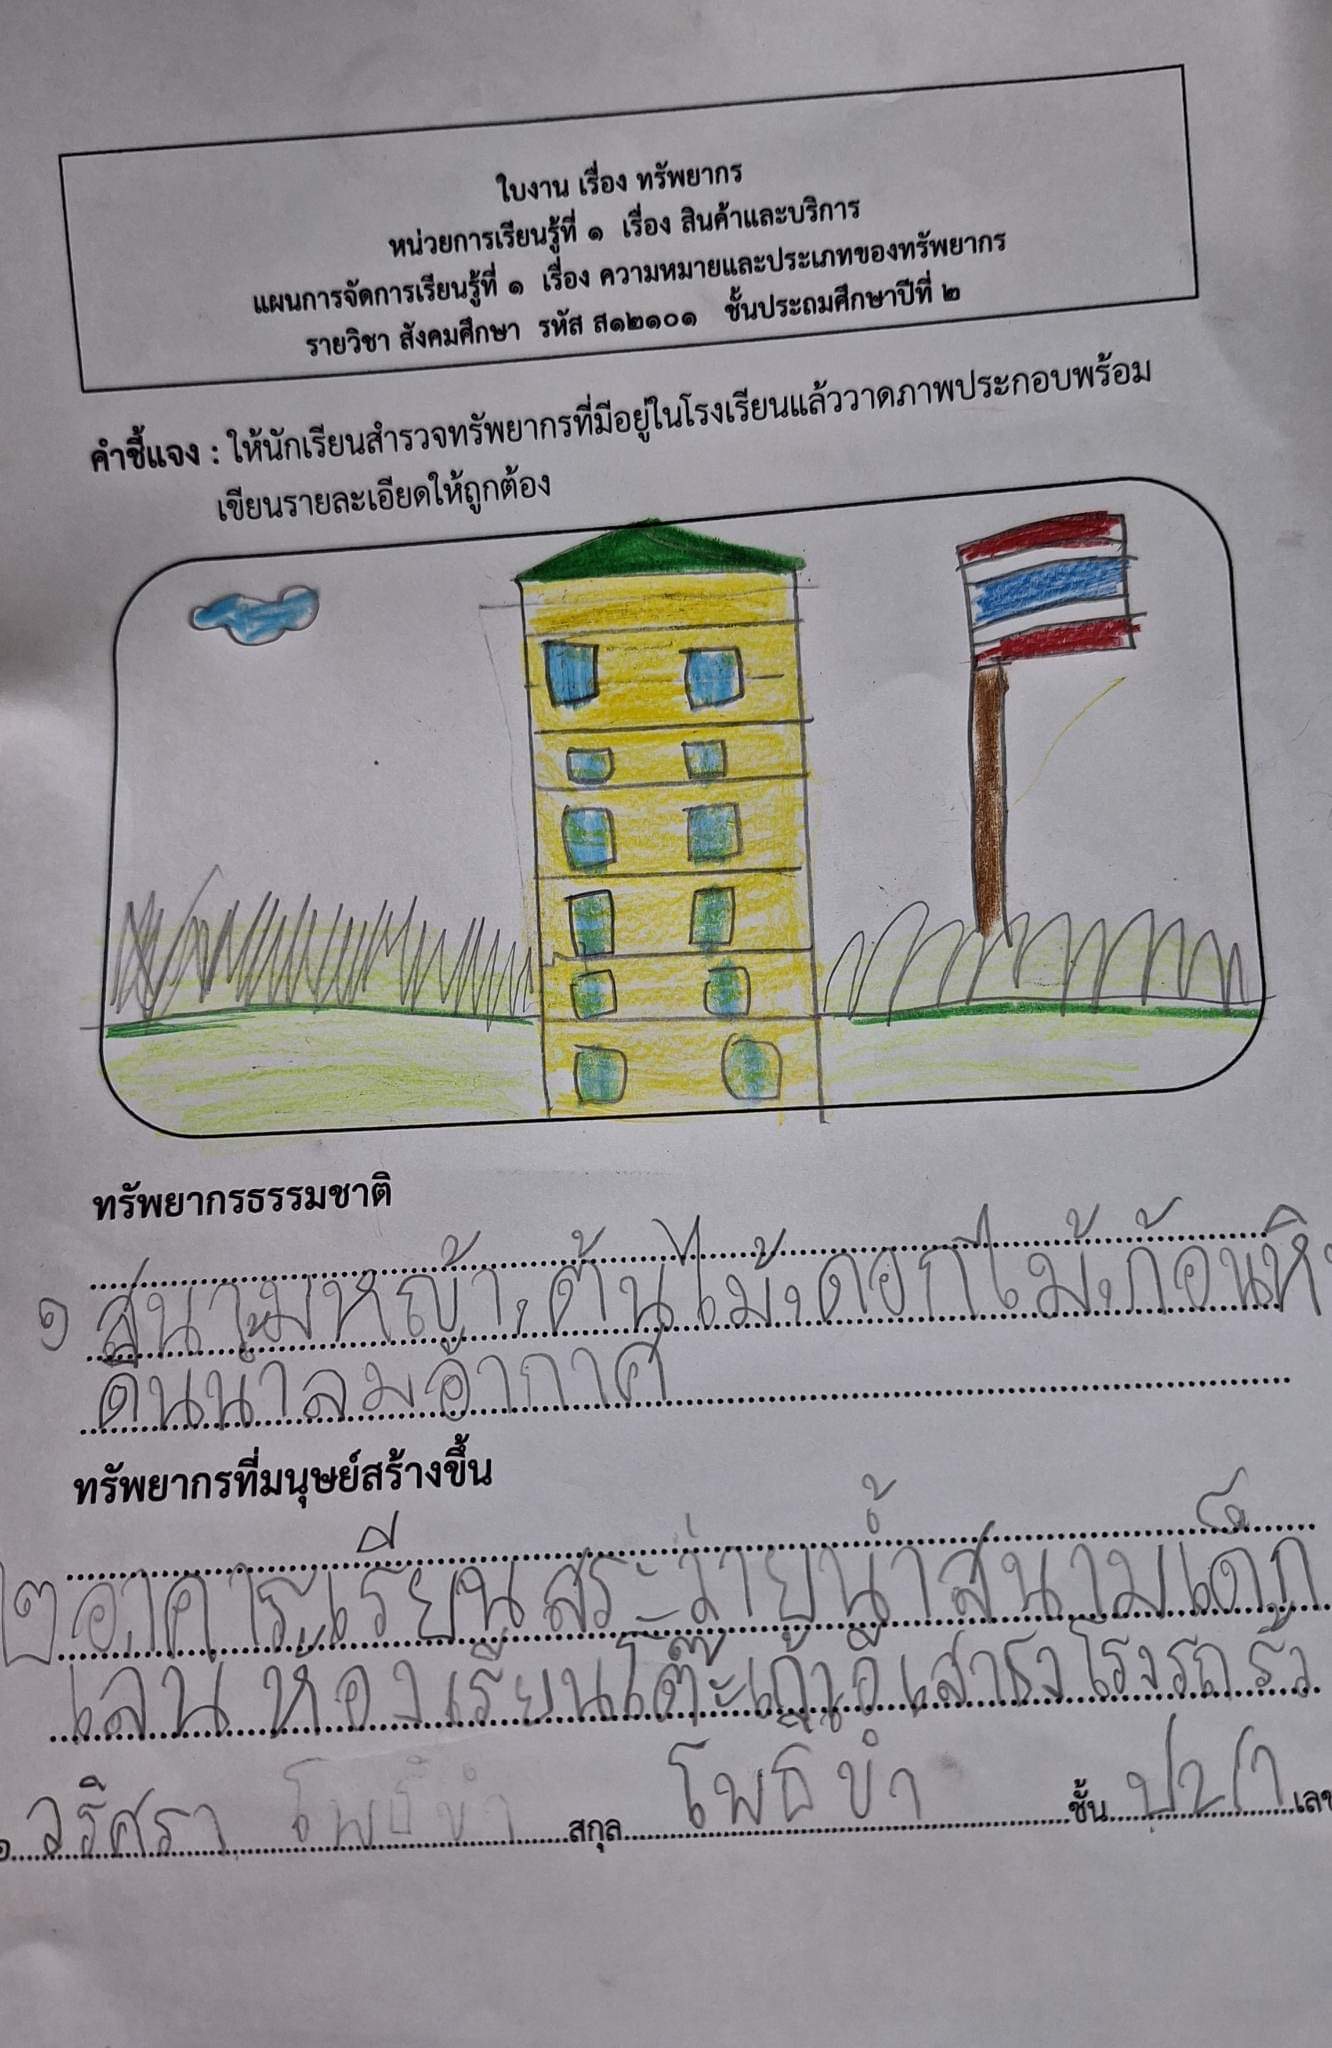 ใบงาน เรื่อง ทรัพยากร
หน่วยการเรียนรู้ที่ ๑ เรื่อง สินค้าและบริการ
แผนการจัดการเรียนรู้ที่ ๑ เรื่อง ความหมายและประเภทของทรัพยากร
รายวิชา สังคมศึกษา รหัส ส๑๒๑๐๑ ชั้นประถมศึกษาปีที่ ๒
คำชี้แจง : ให้นักเรียนสำรวจทรัพยากรที่มีอยู่ในโรงเรียนแล้ววาดภาพประกอบพร้อม
เขียนรายละเอียดให้ถูกต้อง
ทรัพยากรธรรมชาติ
๑ สนามหญ้า,ต้นไม้,ดอกไม้,ก้อนหิ
ดินน้ำลมอากาศ
ทรัพยากรที่มนุษย์สร้างขึ้น
๒ อาคารเรียนสระว่ายน้ำสนามเด็ก
เลน ห้องเรียนโต๊ะเก้าอี้เสาธงโรงรถรั้ว
วริศรา โพธิ์ขำ สกุล โพธิ์ขำ ชั้น ป๒/๑ เลข